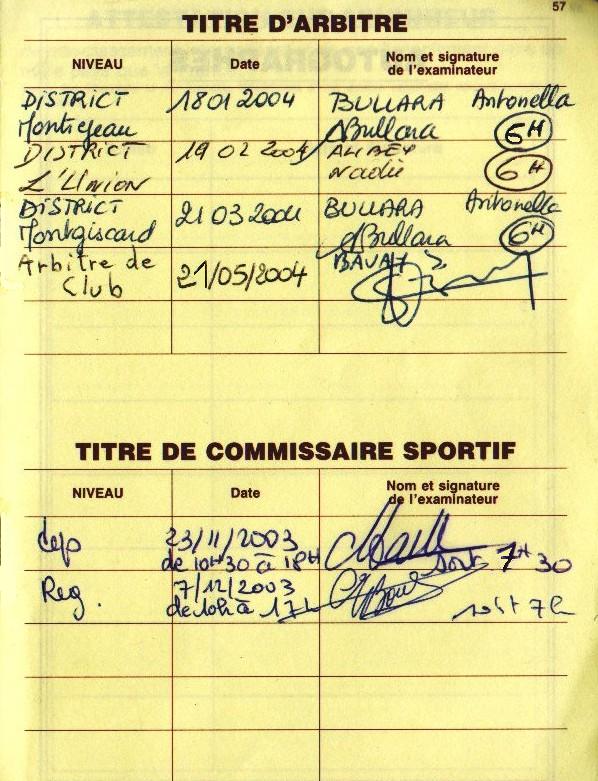 57
TITRE D'ARBITRE
NIVEAU Date Nom et signature de l'examinateur
DISTRICT 18 01 2004 BULLARA Antonella
Montrejeau Bullara 6H
DISTRICT 19 02 2004 ALIBEY
L'Union Nadie 6H
DISTRICT 21 03 2004 BULLARA Antonella
Montgiscard Bullara 6H
Arbitre de 21/05/2004
Club
TITRE DE COMMISSAIRE SPORTIF
NIVEAU Date Nom et signature de l'examinateur
dep 23/11/2003
de 10H30 à 18H soit 7H30
Reg. 7/12/2003
de 10h à 17h soit 7h